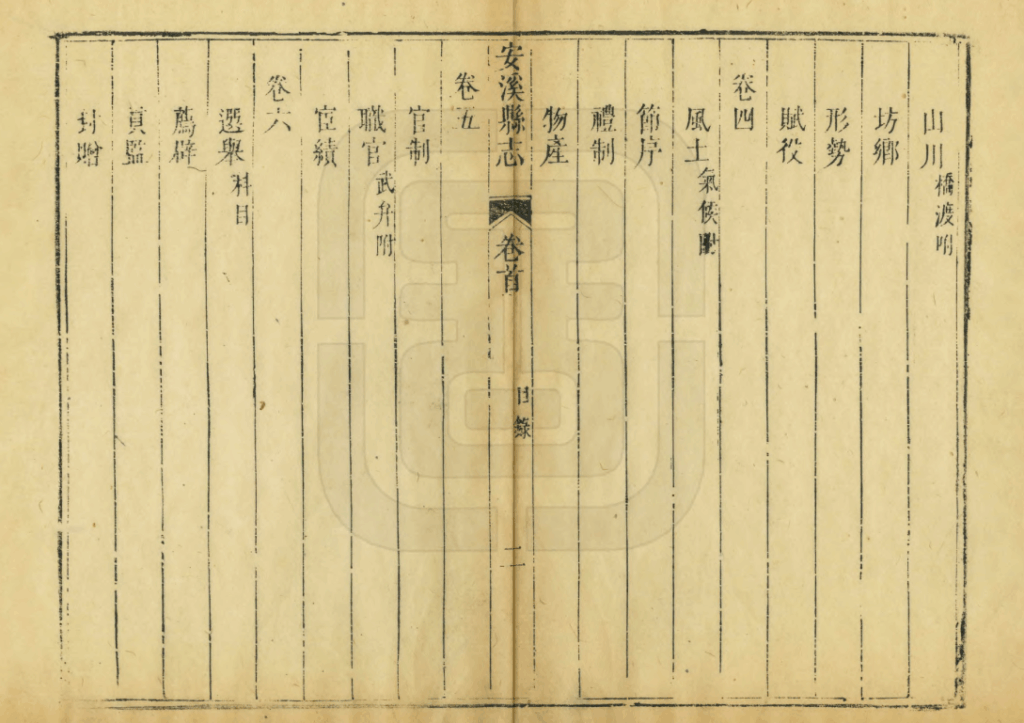 山川橋渡附
坊鄉
形勢
賦役
卷四
風土氣候附
節序
禮制
物產
安溪縣志 卷首 目錄 二
卷五
官制
職官武弁附
宦績
卷六
選舉科目
薦辟
貢監
封贈